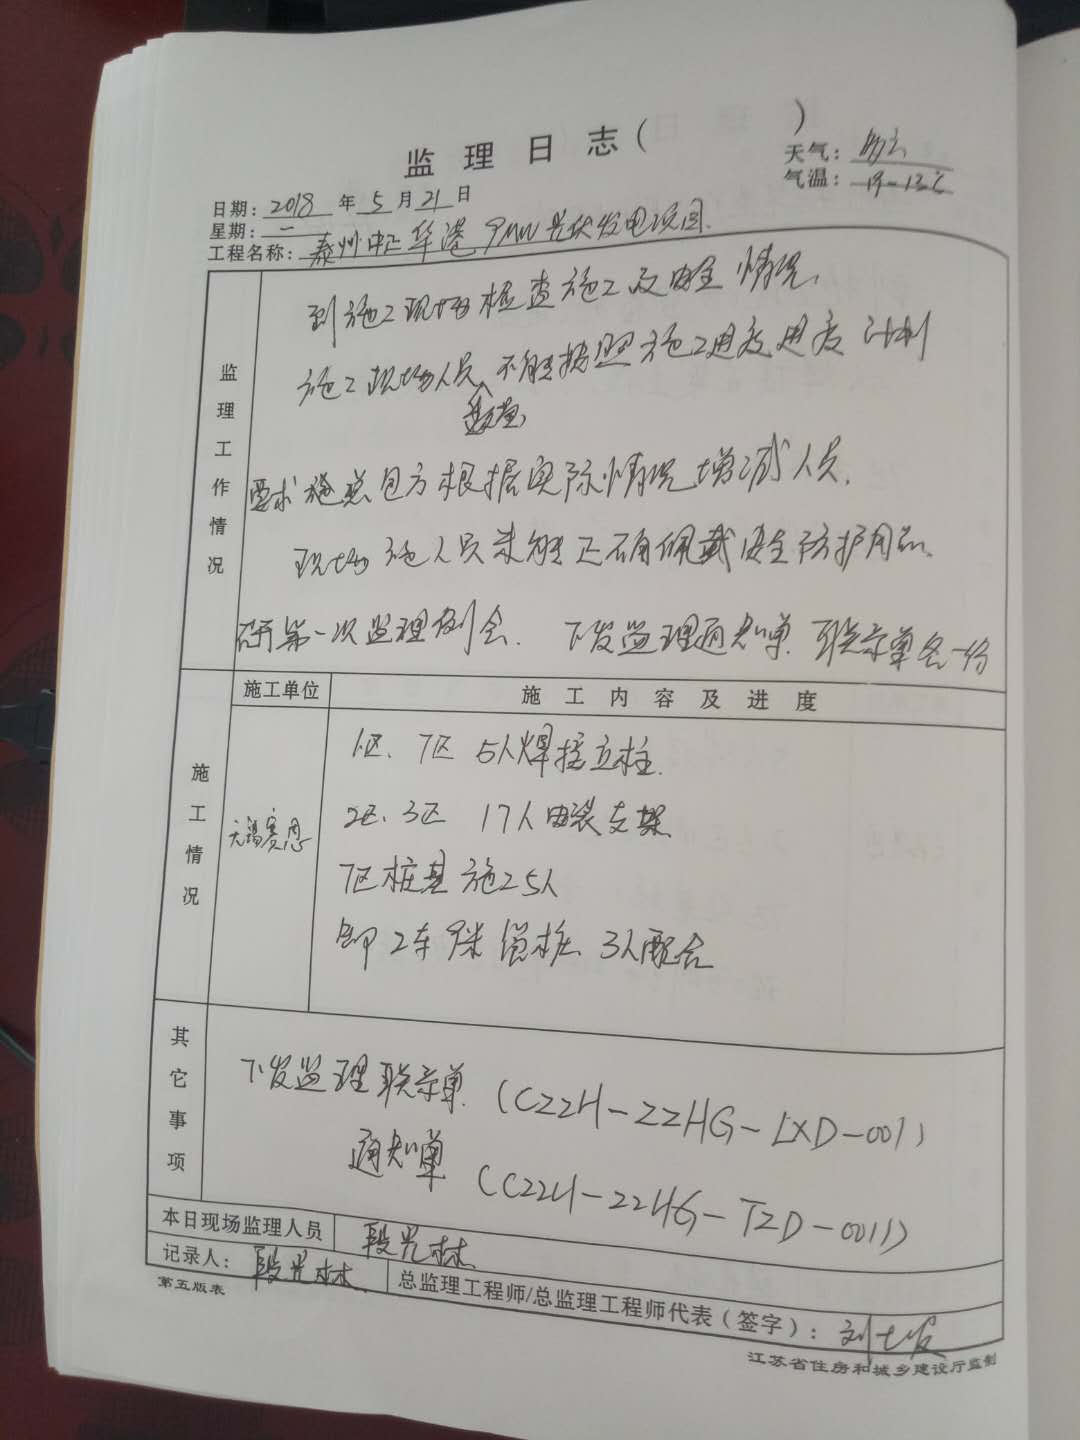 监 理 日 志 ( )
天气: 多云
气温:
日期: 2018 年 5 月 21 日
星期: 一
工程名称: 泰州中正华港 9MW光伏发电项目
监理工作情况
到施工现场检查施工及安全情况,
施工现场人员数量不能按照施工进度进度计划
要求施总包方根据实际情况增减人员.
现场施人员未能正确佩戴安全防护用品.
开第一次监理例会. 下发监理通知单. 联系单各一份
施工情况
施工单位
施 工 内 容 及 进 度
无锡赛恩
1区、7区 5人焊接立柱.
2区、3区 17人安装支架
7区桩基施工5人
卸2车 桩 3人配合
其它事项
下发监理联系单 (CZZH-ZZHG-LXD-001)
通知单 (CZZH-ZZHG-TZD-001)
本日现场监理人员 段光林
记录人: 段光林 总监理工程师/总监理工程师代表(签字): 刘
第五版表
江苏省住房和城乡建设厅监制